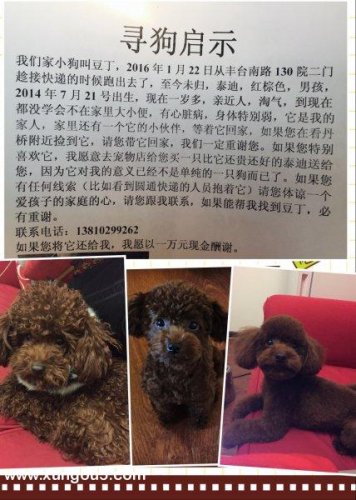 寻狗启示
我们家小狗叫豆丁，2016 年 1 月 22 日从丰台南路 130 院二门
趁接快递的时候跑出去了，至今未归，泰迪，红棕色，男孩，
2014 年 7 月 21 号出生，现在一岁多，亲近人，淘气，到现在
都没学会不在家里大小便，有心脏病，身体特别弱，它是我的
家人，家里还有一个它的小伙伴，等着它回家，如果您在看丹
桥附近捡到它，请您带它回家，我们一定重谢您。如果您特别
喜欢它，我愿意去宠物店给您买一只比它还贵还好的泰迪送给
您，因为它对我的意义已经不是单纯的一只狗而已了。如果您
有任何线索（比如看到圆通快递的人员抱着它）请您体谅一个
爱孩子的家庭的心，请您跟我联系，如果能帮我找到豆丁，必
有重谢。
联系电话：13810299262
如果您将它还给我，我愿以一万元现金酬谢。
www.xungou5.com